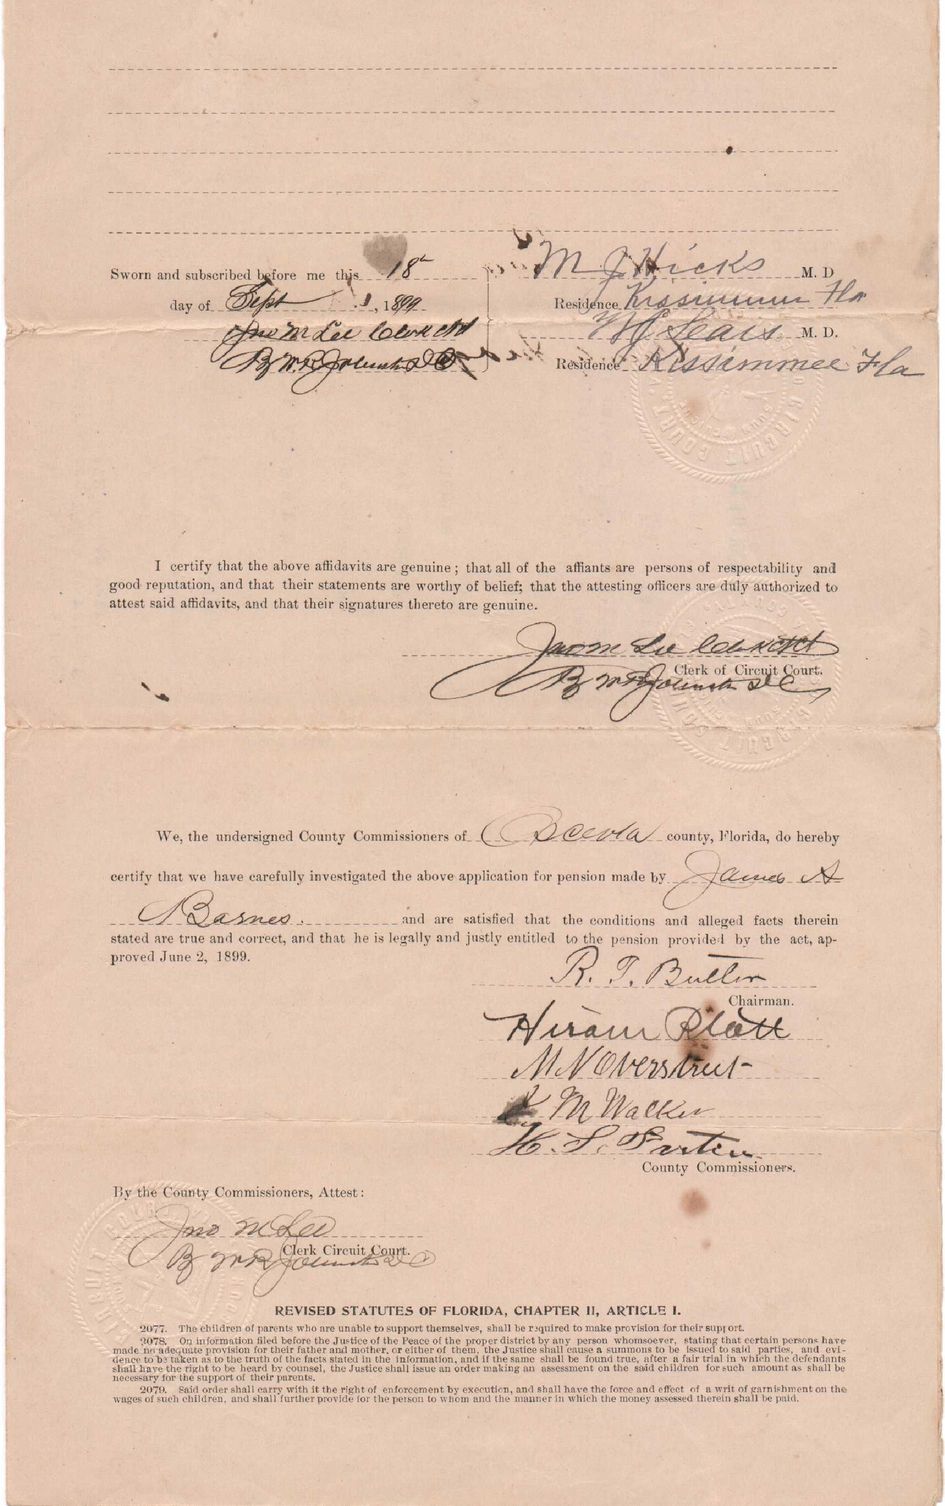 Sworn and subscribed before me this 18"
M J Hicks M. D
day of Sept 1, 1899
Residence Kissimmee Fla
Jno M Lee Clerk Ct Ct
M. D.
By W. R. Johnston D C
Residence Kissimmee Fla
I certify that the above affidavits are genuine; that all of the affiants are persons of respectability and
good reputation, and that their statements are worthy of belief; that the attesting officers are duly authorized to
attest said affidavits, and that their signatures thereto are genuine.
Jno M Lee Clerk Ct Ct
Clerk of Circuit Court.
By W R Johnston D C
We, the undersigned County Commissioners of Osceola county, Florida, do hereby
certify that we have carefully investigated the above application for pension made by James A
Barnes. and are satisfied that the conditions and alleged facts therein
stated are true and correct, and that he is legally and justly entitled to the pension provided by the act, ap-
proved June 2, 1899.
R. T. Butler
Chairman.
Hiram Platt
M N Overstreet
M Walker
H. S. Partin.
County Commissioners.
By the County Commissioners, Attest:
Jno M Lee
Clerk Circuit Court.
By W R Johnston D C
REVISED STATUTES OF FLORIDA, CHAPTER II, ARTICLE I.
2077. The children of parents who are unable to support themselves, shall be required to make provision for their support.
2078. On information filed before the Justice of the Peace of the proper district by any person whomsoever, stating that certain persons have
made no adequate provision for their father and mother, or either of them, the Justice shall cause a summons to be issued to said parties, and evi-
dence to be taken as to the truth of the facts stated in the information, and if the same shall be found true, after a fair trial in which the defendants
shall have the right to be heard by counsel, the Justice shall issue an order making an assessment on the said children for such amount as shall be
necessary for the support of their parents.
2079. Said order shall carry with it the right of enforcement by execution, and shall have the force and effect of a writ of garnishment on the
wages of such children, and shall further provide for the person to whom and the manner in which the money assessed therein shall be paid.